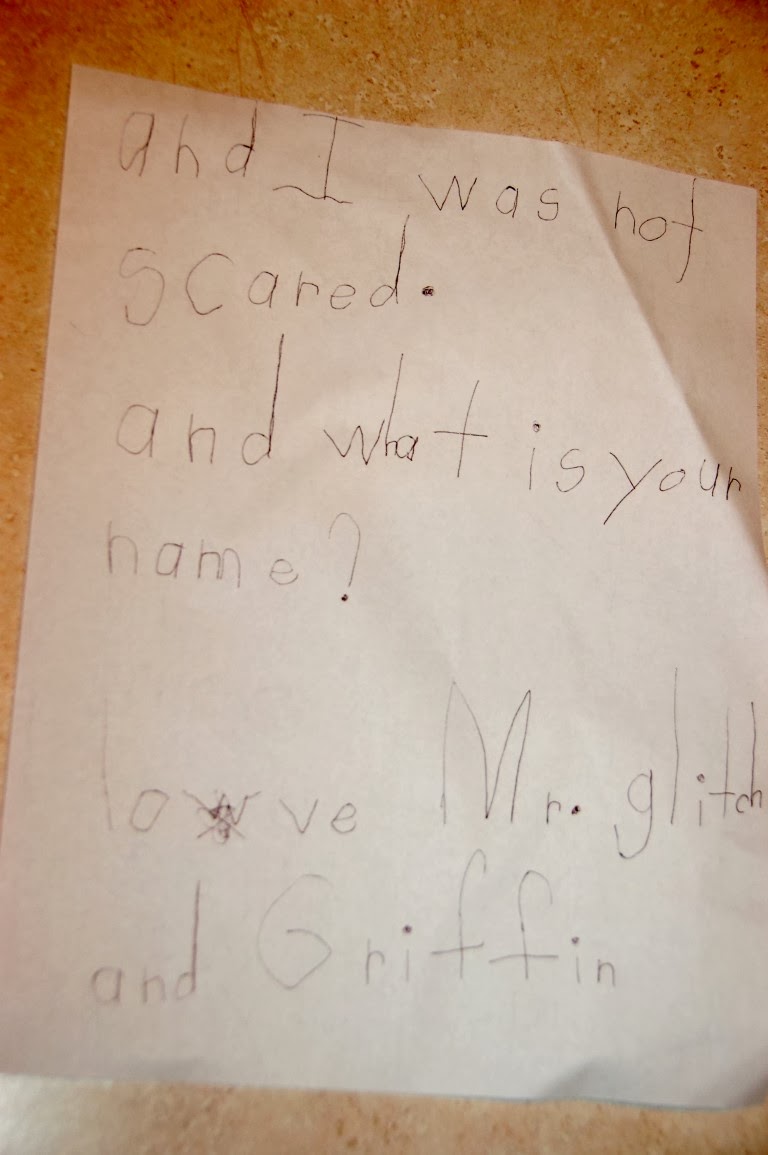 and I was not
scared.
and what is your
name?
love Mr. glitch
and Griffin